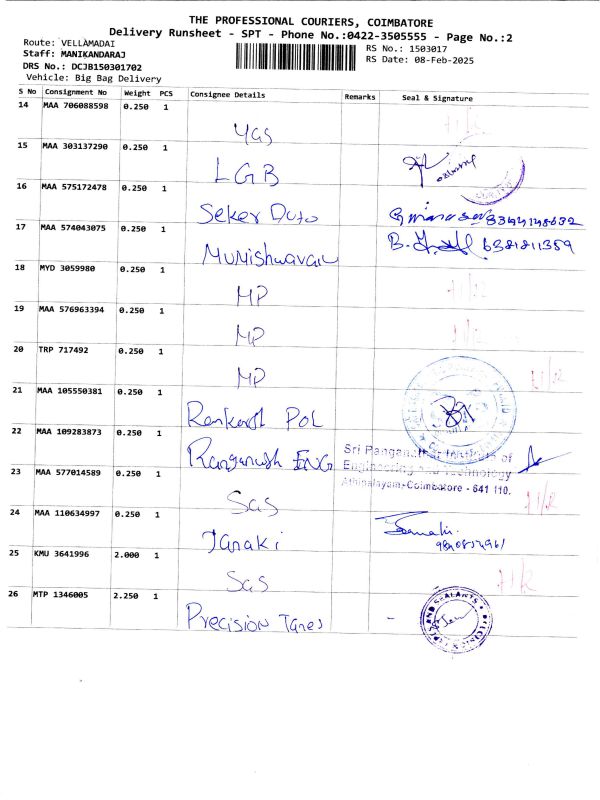 THE PROFESSIONAL COURIERS, COIMBATORE
Delivery Runsheet - SPT - Phone No.:0422-3505555 - Page No.:2
Route: VELLAMADAI
Staff: MANIKANDARAJ
DRS No.: DCJB150301702
Vehicle: Big Bag Delivery
RS No.: 1503017
RS Date: 08-Feb-2025
S No Consignment No Weight PCS Consignee Details Remarks Seal & Signature
14 MAA 706088598 0.250 1
15 MAA 303137290 0.250 1 LGB
16 MAA 575172478 0.250 1 Seker Duto
17 MAA 574043075 0.250 1 6381811359
18 MYD 3059980 0.250 1 MP
19 MAA 576963394 0.250 1 MP
20 TRP 717492 0.250 1 MP
21 MAA 105550381 0.250 1 POL
22 MAA 109283873 0.250 1 ENG
Sri Ranganathar Institute of
Engineering and Technology
Athipalayam, Coimbatore - 641 110.
23 MAA 577014589 0.250 1 Sas
24 MAA 110634997 0.250 1 Janaki
25 KMU 3641996 2.000 1 Sas
26 MTP 1346005 2.250 1 Precision